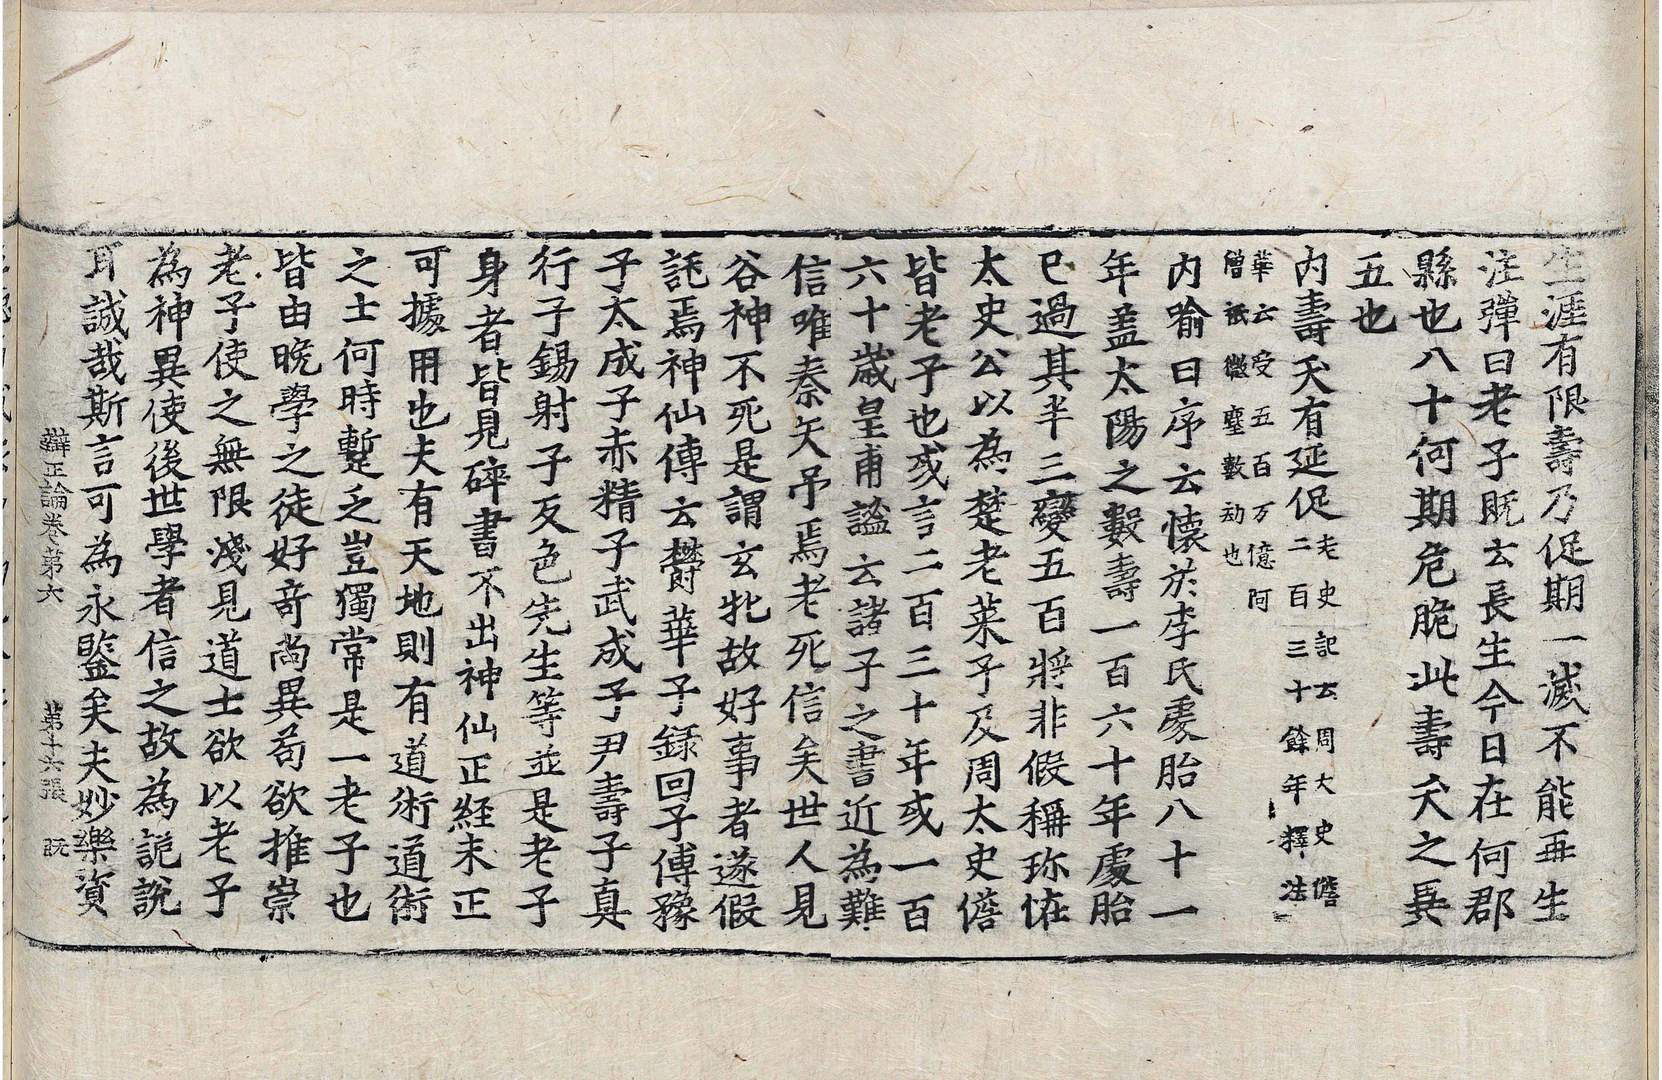 生涯有限壽乃促期一滅不能再生
注彈曰老子既云長生今日在何郡
縣也八十何期危脆此壽夭之異
五也
內壽夭有延促
老史記云周大史儋
二百三十餘年釋法
華云受五百万億阿
僧祇微塵數劫也
內喻曰序云懷於李氏處胎八十一
年蓋太陽之數壽一百六十年處胎
已過其半三變五百將非假稱珎恠
太史公以為楚老萊子及周太史儋
皆老子也或言二百三十年或一百
六十歲皇甫謐云諸子之書近為難
信唯秦矢吊焉老死信矣世人見
谷神不死是謂玄牝故好事者遂假
託焉神仙傳云欝華子録回子傅豫
子太成子赤精子武成子尹壽子真
行子錫射子友色先生等並是老子
身者皆見碎書不出神仙正経未正
可據用也夫有天地則有道術道術
之士何時蹔乏豈獨常是一老子也
皆由晚學之徒好竒尚異苟欲推崇
老子使之無限淺見道士欲以老子
為神異使後世學者信之故為詭說
耳誠哉斯言可為永鑒矣夫妙樂資
辯正論卷第六 第十六張 既